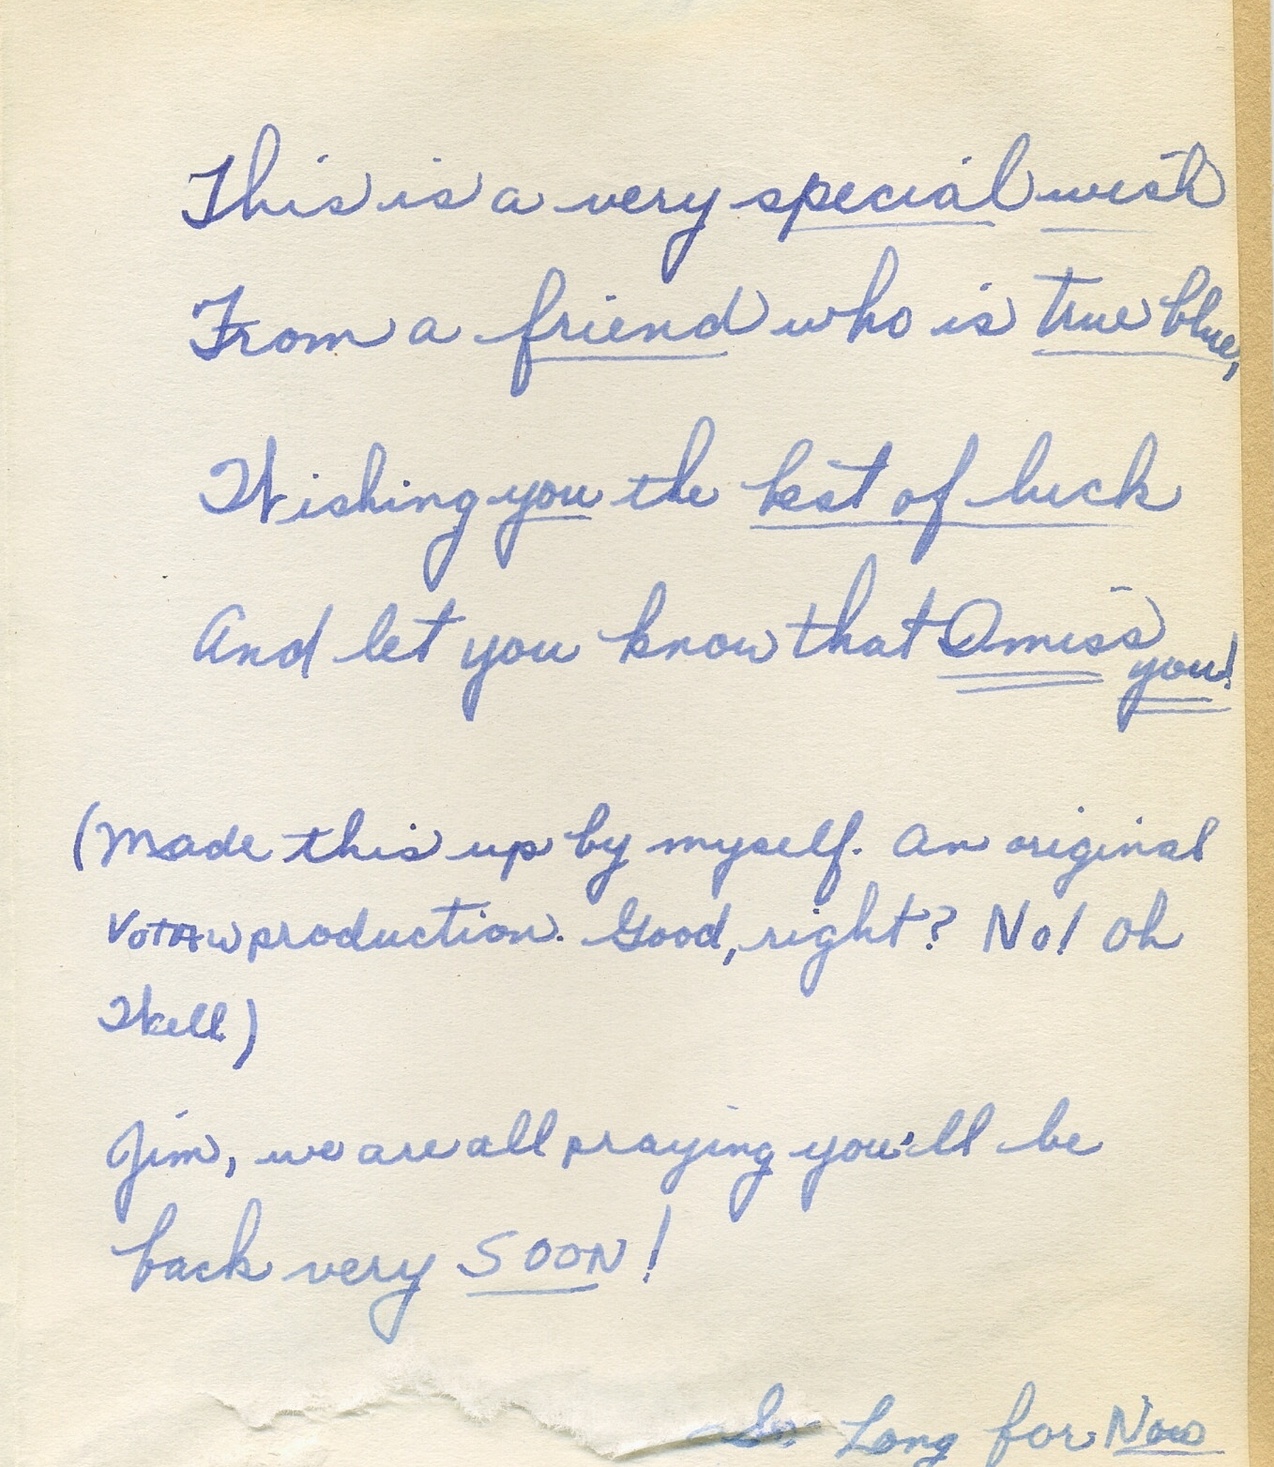 This is a very special wish
From a friend who is true blue,
Wishing you the best of luck
And let you know that I miss you!
(Made this up by myself. An original
Votaw production. Good, right? No! Oh
Well)
Jim, we are all praying you'll be
back very SOON!
So Long for Now